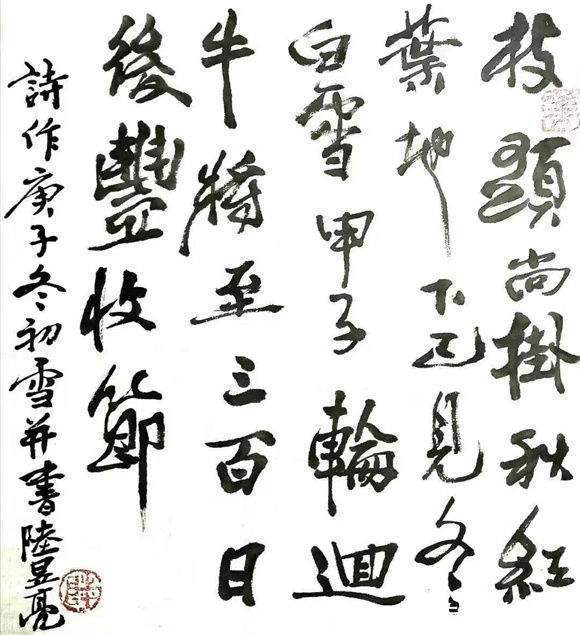 枝頭尚掛秋紅
葉地下已見冬
白雪甲子輪迴
牛將至三百日
後豐收節
詩作庚子冬初雪并書陸昱亮